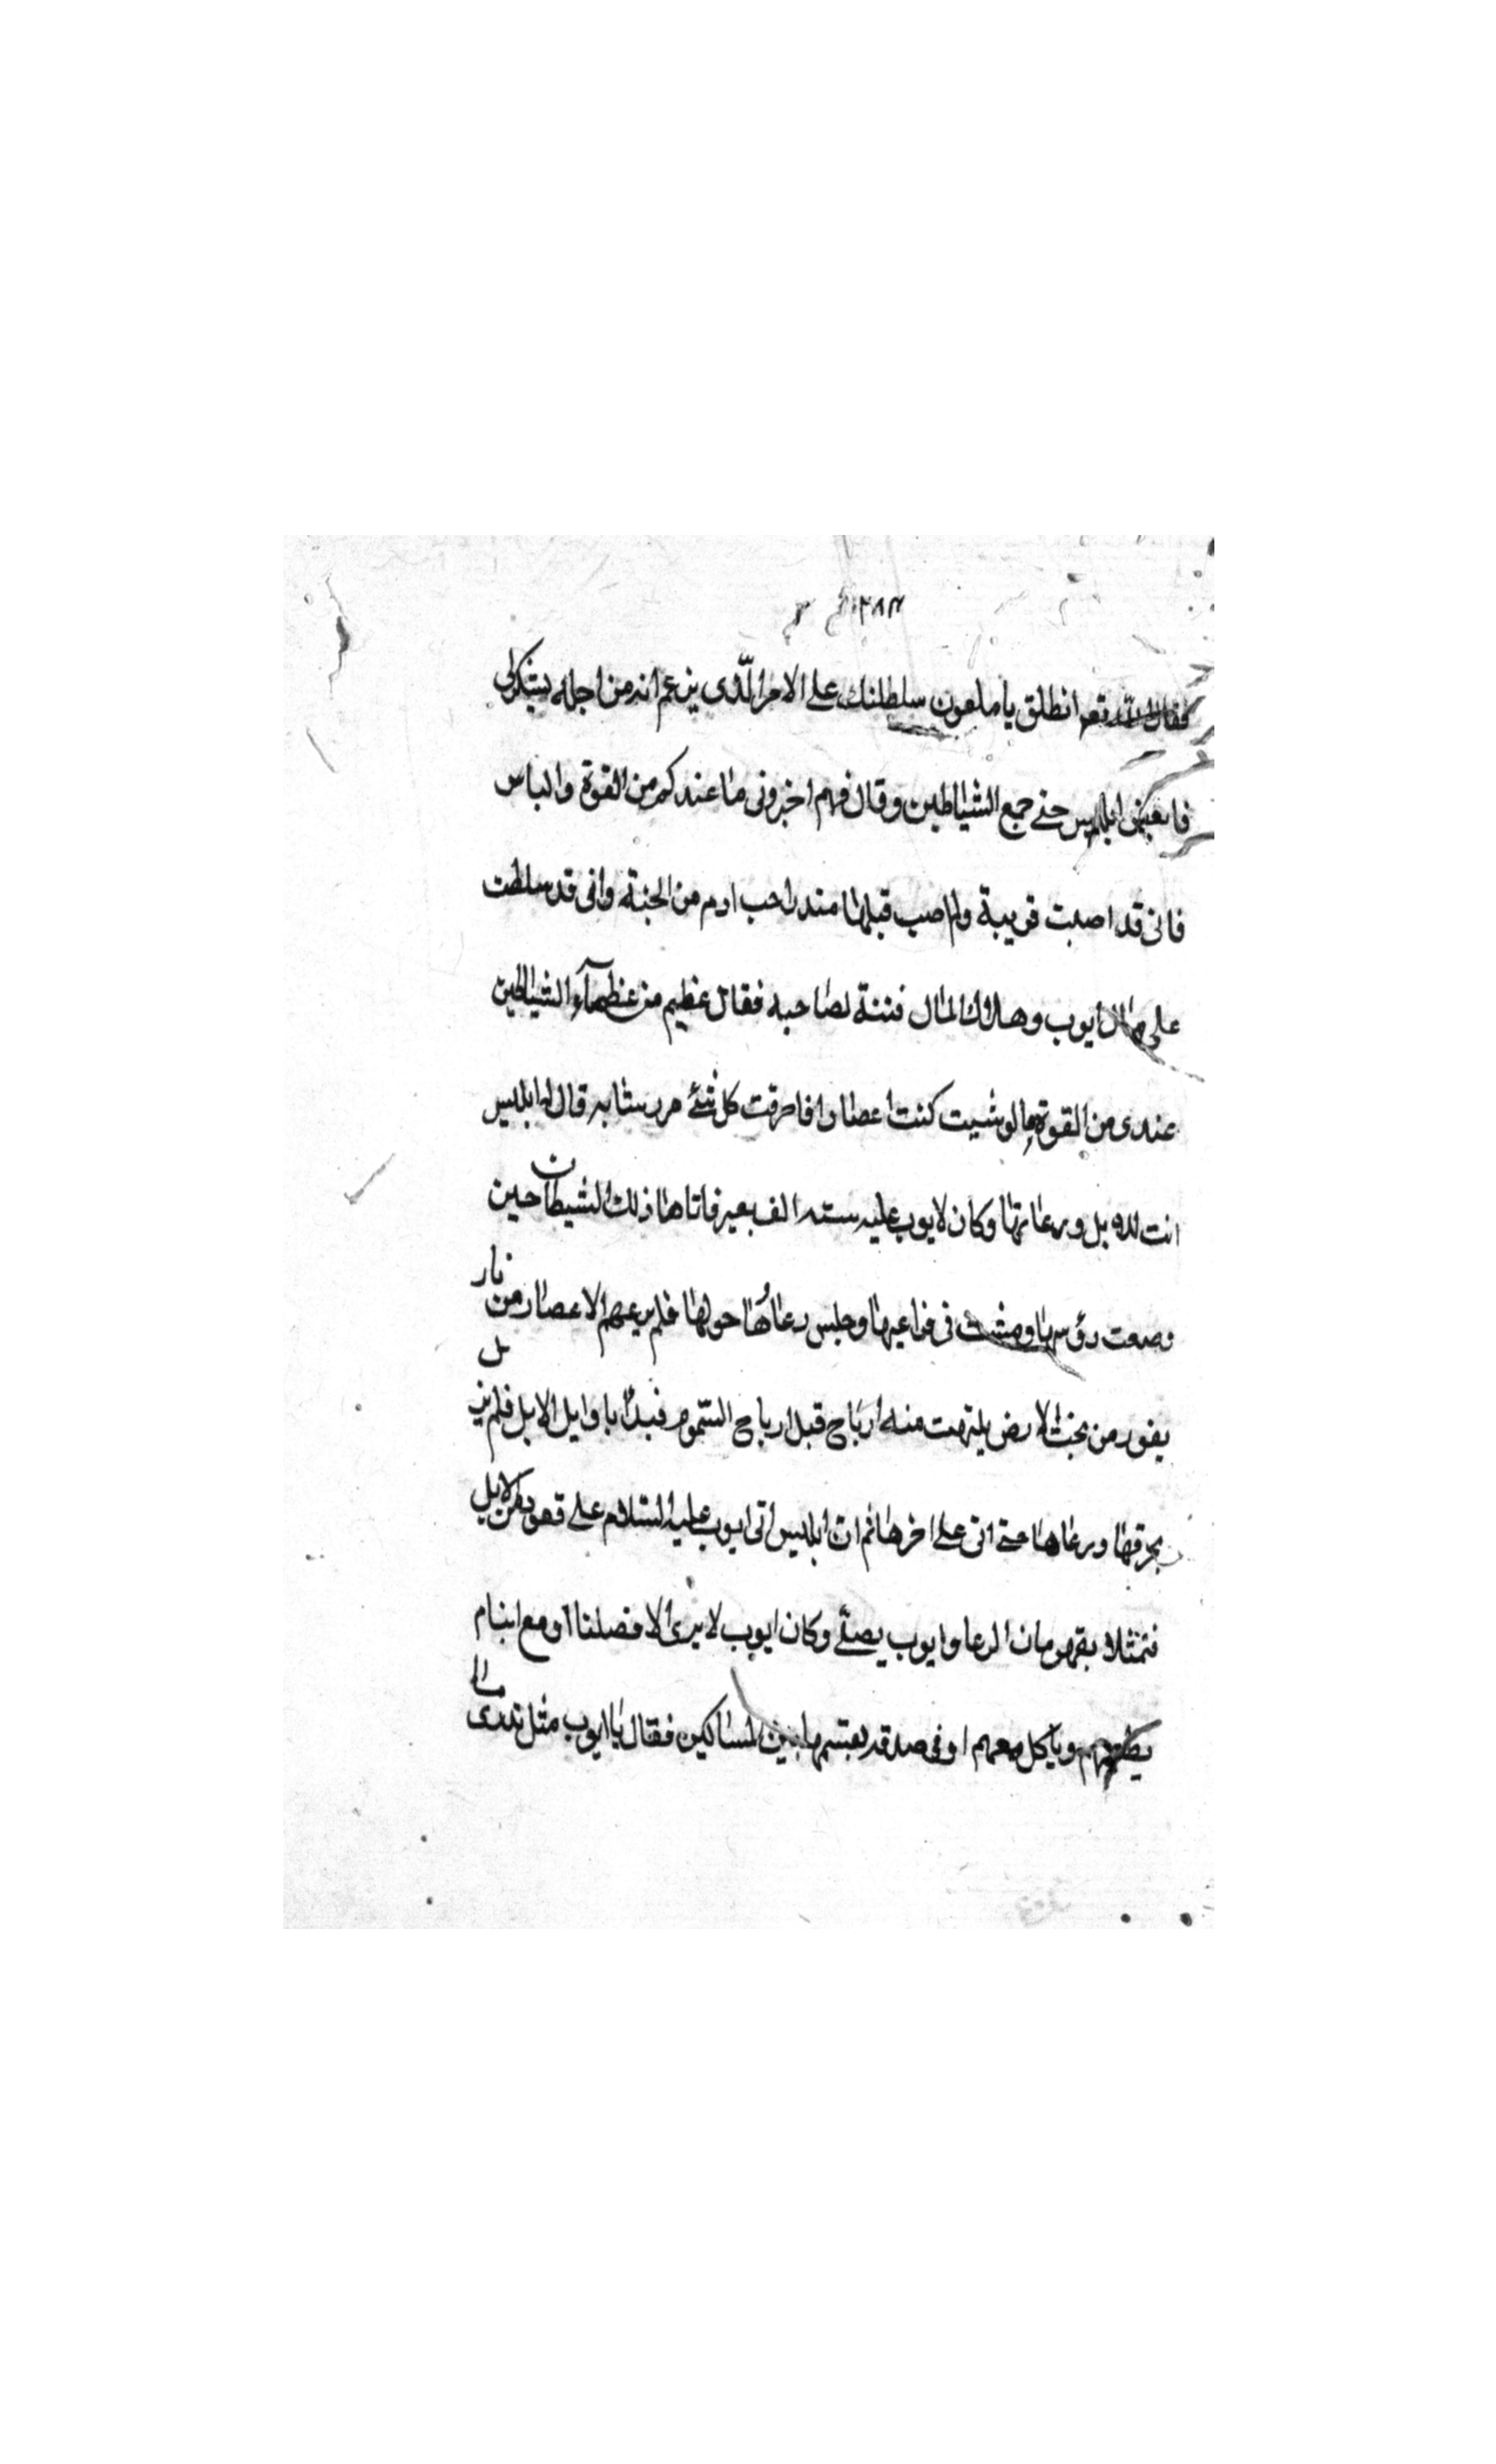 ٢٨٣
فقال الله تعم انطلق يا ملعون سلطانك على الامر الّذى يزعم انه من اجله يشكرلى
ابليس حتى جمع الشياطين وقال فهم اخبرونى ما عندكم من القوة والباس
فانى قد اصبت ولم اصب قبلها منذ ادم من الجنة وانى قد سلطت
على مال ايوب وهلاك المال فتنة لصاحبه فقال عظيم من عظمآء الشياطين
عندى من القوة ما لو شيت كنت اعصارا فاحرقت كل شئ قال له ابليس
انت للابل ورعاتها وكان لايوب عليه سته الف بعير فاتاها ذلك الشيطان حين
وضعت رؤسها فى مراعيها وجلس رعاوها حولها فلم يرعهم الا عصار من نار
يفور من تحت الارض منه ارياح قبل ارياح السّموم فبدأ باوايل الابل فلم يزل
يحرقها ورعاها حتى اتى على اخرها ثم ان ابليس اتى ايوب عليه السّلام على قعود من الابل
فتمثلا بقهرمان الرعا وايوب يصلّى وكان ايوب لا يرى الا مصلنا او مع ايتام
وياكل معهم او فى صدقه يقسمها بين المساكين فقال يا ايوب مثل تدرى مالى